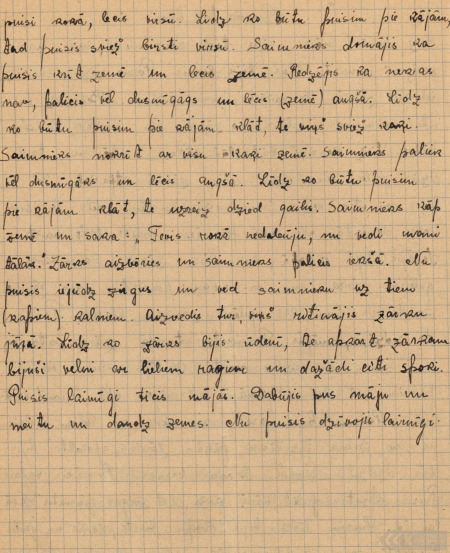 puisi rokā, lēcis virsū. Līdz ko būtu puisim pie kājām,
tad puisis sviež birsti virsū. Saimnieks domājis ka
puisis krīt zemē un lēcis zemē. Redzējis ka nekas
nav, palicis vēl dusmīgāgs un lēcis (zemē) augšā. Līdz
ko būtu puisim pie kājām klāt, te viņš sviež kazi.
Saimnieks nokrīt ar visu kazi zemē. Saimnieks paliek
vēl dusmīgāks un lēcis augšā. Līdz ko būtu puisim
pie kājām klāt, te uzreiz dzied gailis. Saimnieks kāp
zemē un saka: „Tevis rokā nedabūju, nu vedi mani
tālāk." Zārks aizvēries un saimnieks palicis iekšā. Nu
puisis izjūdz zirgus un ved saimnieku uz tiem
(kapiem) kalniem. Aizvedis tur, viņš ieripinājis zārku
jūrā. Līdz ko zārks bijis ūdenī, te apkārt zārkam
bijuši velni ar lieliem ragiem un dažādi citi spoki.
Puisis laimīgi ticis mājās. Dabūjis pus māju un
meitu un daudz zemes. Nu puisis dzīvoja laimīgi.